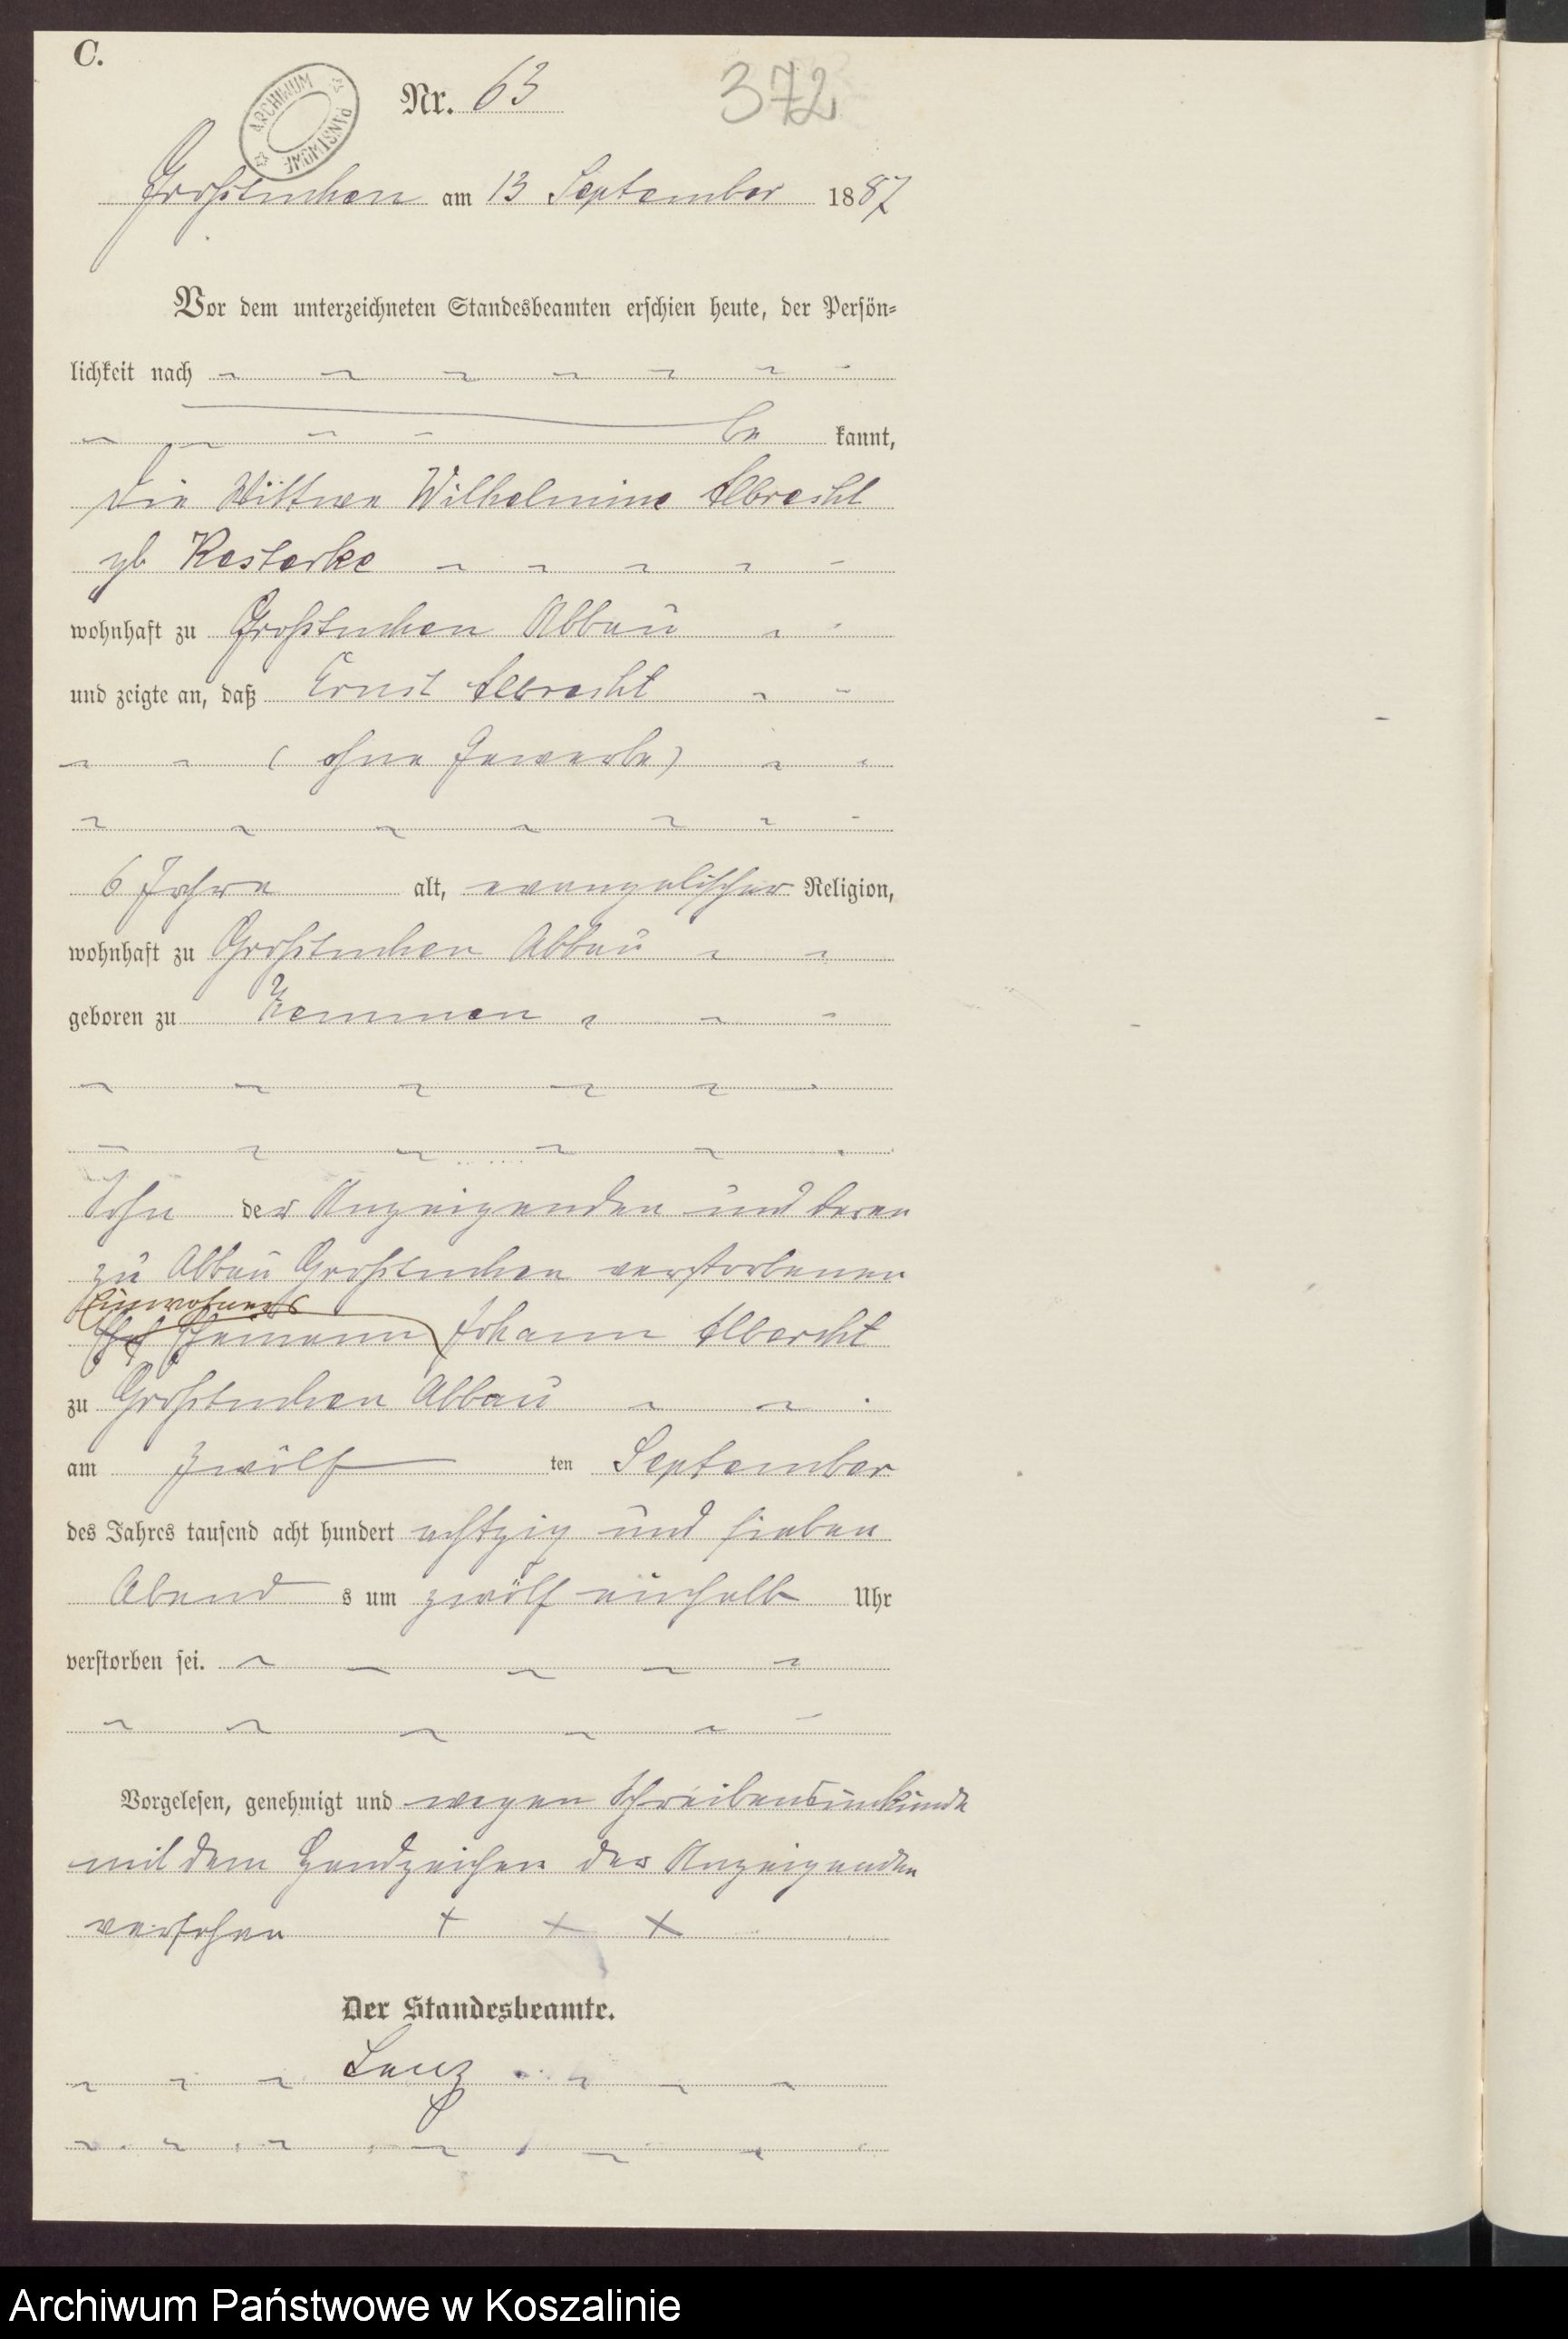 C.
ARCHIWUM PAŃSTWOWE
Nr. 63
372
Großtuchen am 13 September 1887
Vor dem unterzeichneten Standesbeamten erschien heute, der Persön-
lichkeit nach
be kannt,
die Wittwe Wilhelmine Albrecht
gb
wohnhaft zu Großtuchen Abbau
und zeigte an, daß Ernst Albrecht
(ohne Gewerbe)
6 Jahre alt, evangelischer Religion,
wohnhaft zu Großtuchen Abbau
geboren zu
Sohn der Anzeigenden und deren
zu Abbau Großtuchen verstorbenen
Einwohners
Ehemann Johann Albercht
zu Großtuchen Abbau
am zwölf ten September
des Jahres tausend acht hundert achtzig und sieben
Abend s um zwölf einhalb Uhr
verstorben sei.
Vorgelesen, genehmigt und wegen Schreibensunkunde
mit dem Handzeichen der Anzeigenden
versehen + + +
Der Standesbeamte.
Lenz
Archiwum Państwowe w Koszalinie